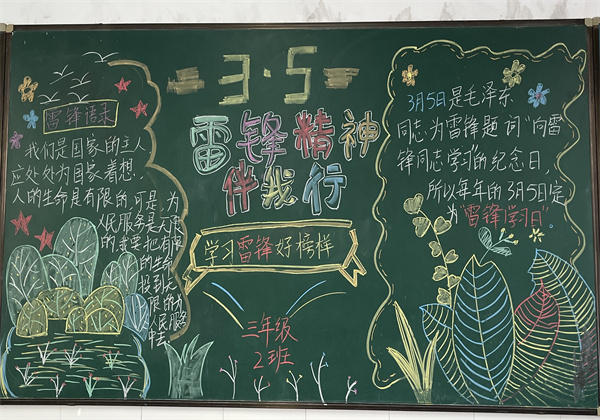 3·5
雷锋精神
伴我行
学习雷锋好榜样
三年级
2班
雷锋语录
我们是国家的主人
应处处为国家着想..
人的生命是有限的,可是,为
人民服务是无限
的,我要把有限
的生命
投到无
限的为
人民服务
中去
3月5日是毛泽东
同志为雷锋题词"向雷
锋同志学习"的纪念日,
所以每年的3月5日定
为"雷锋学习日"。